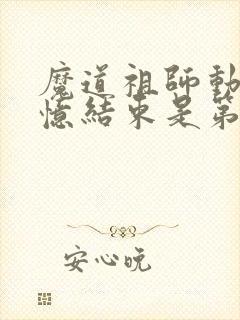 魔道祖師動
憶結束是第
安心晚